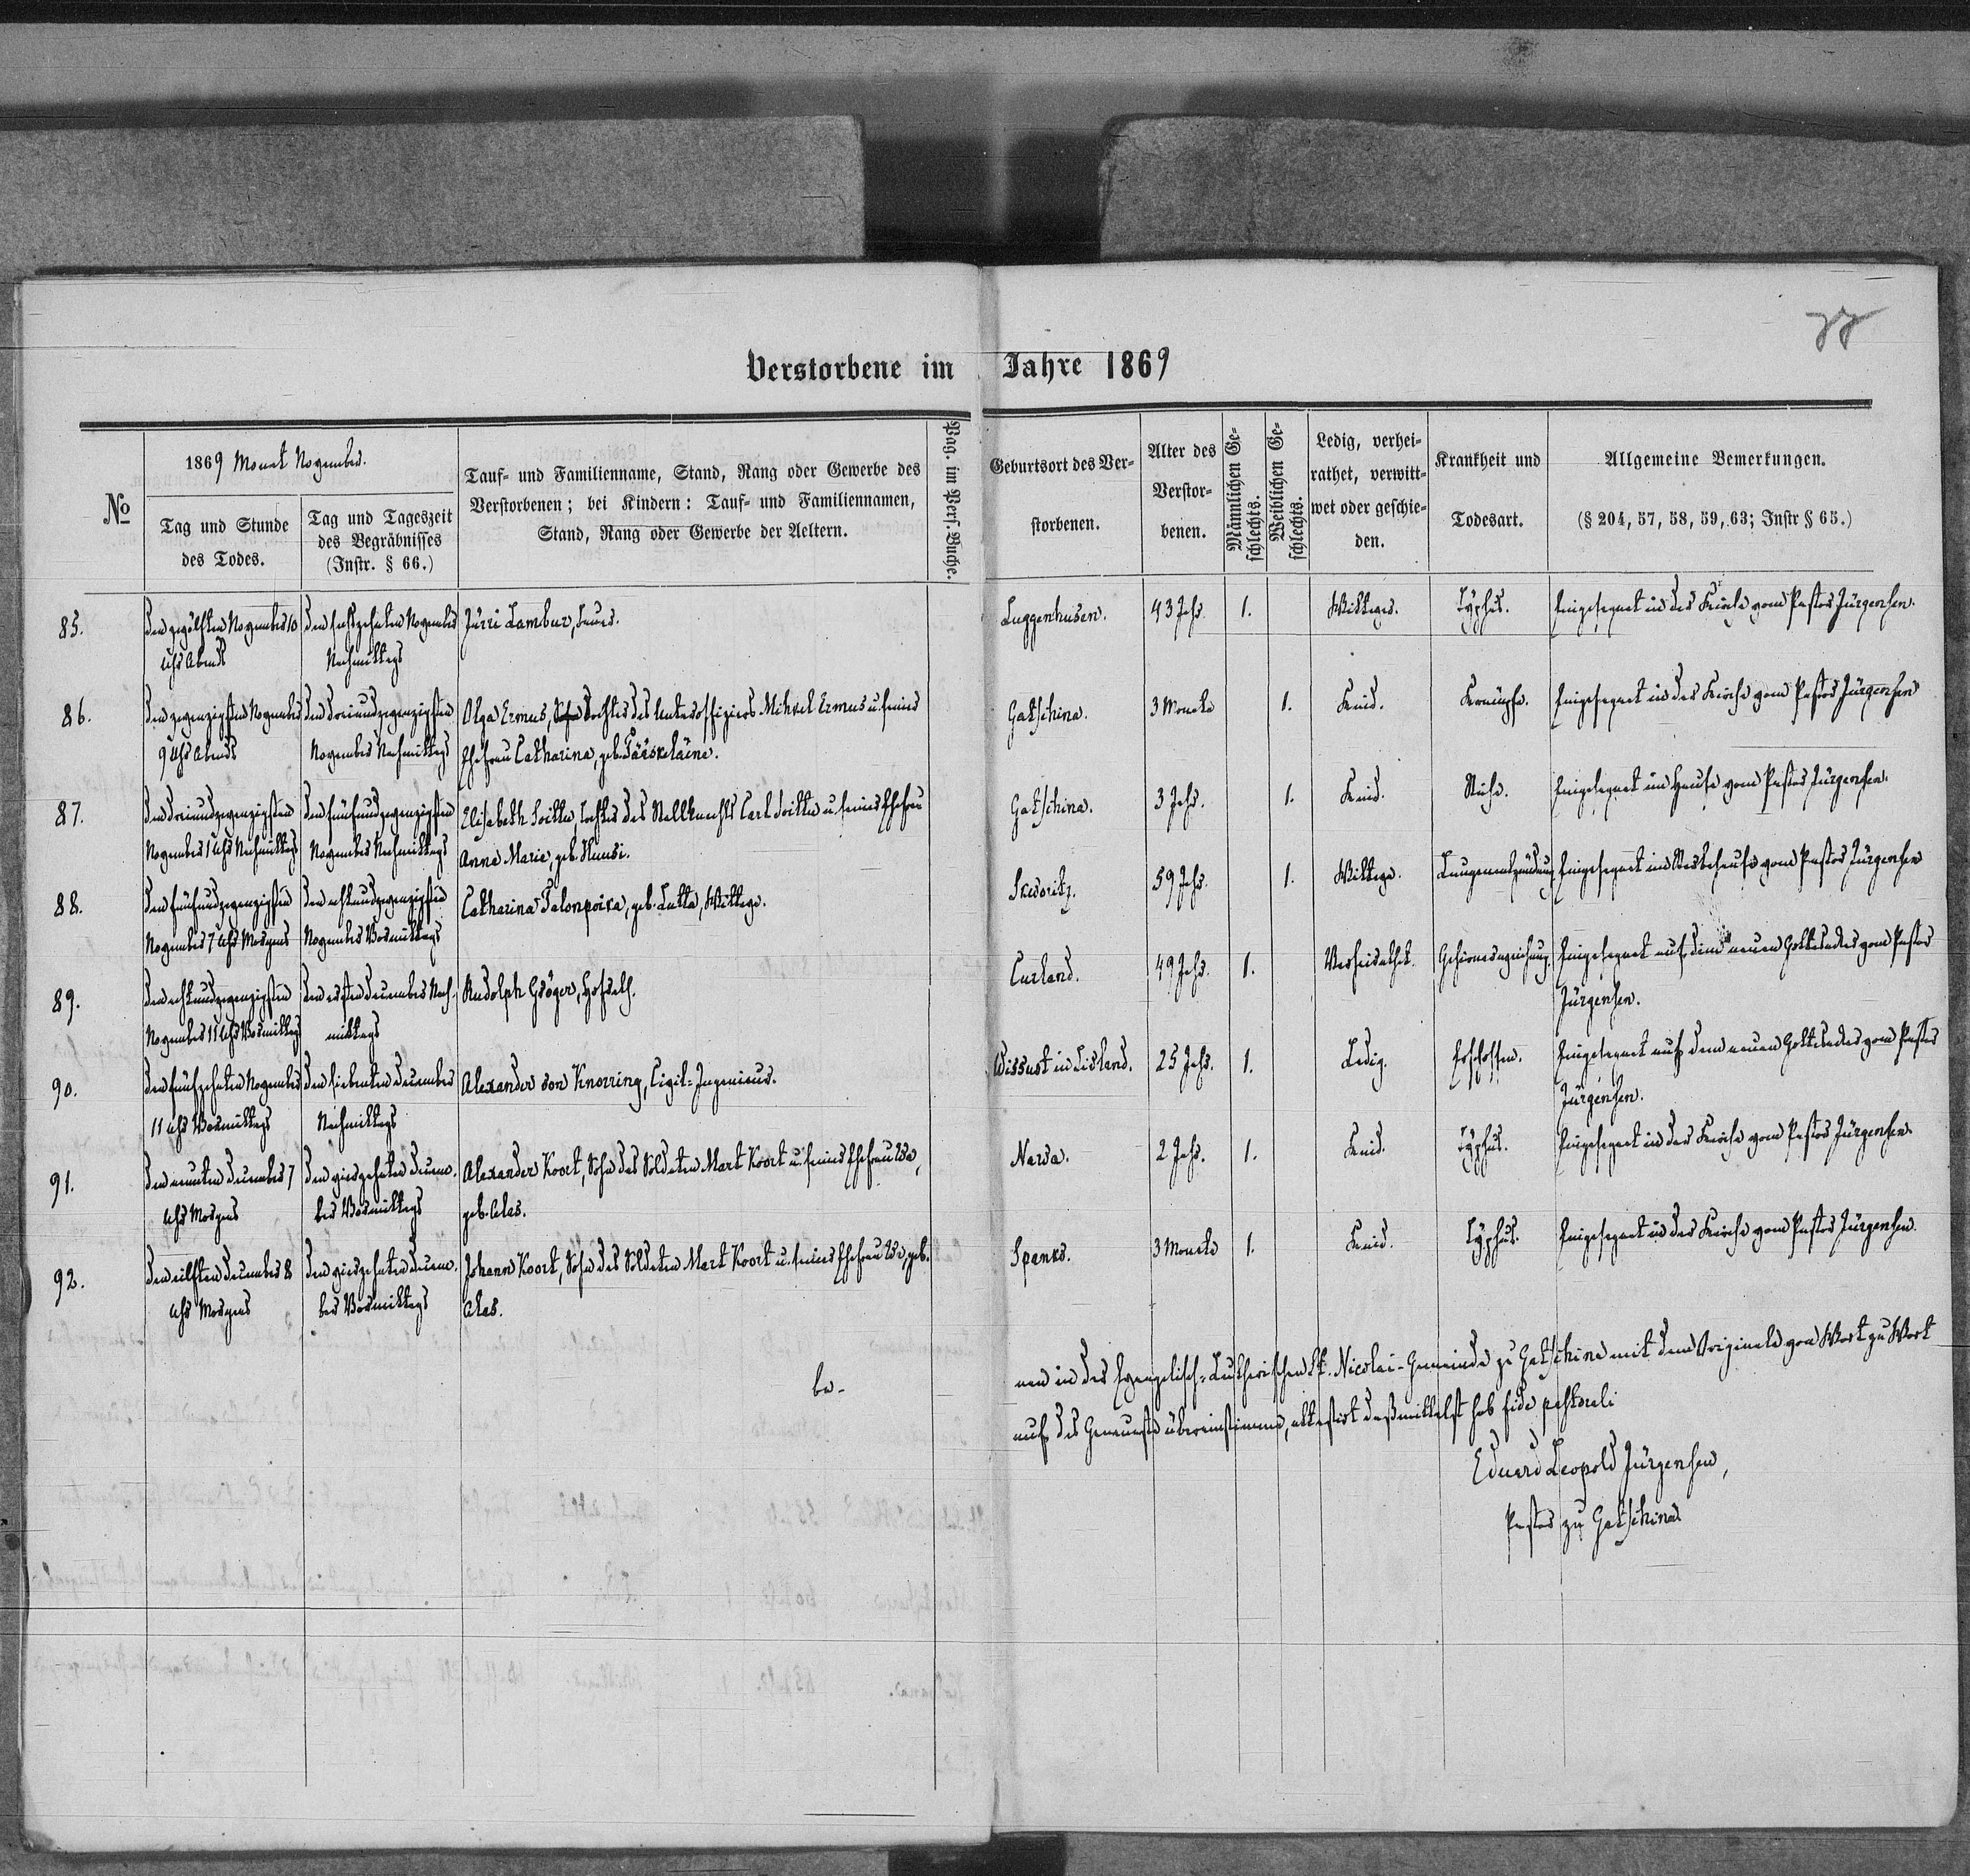 77
Verstorbene im Jahre 1869
№
1869 Monat November.
Tag und Stunde
des Todes.
Tag und Tageszeit
des Begräbnisses
(Instr. § 66.)
Tauf- und Familienname, Stand, Rang oder Gewerbe des
Verstorbenen; bei Kindern: Tauf- und Familiennamen,
Stand, Rang oder Gewerbe der Aeltern.
Pag. im Pers. Buche.
Geburtsort des Ver-
storbenen.
Alter des
Verstor-
benen.
Männlichen Ge-
schlechts.
Weiblichen Ge-
schlechts.
Ledig, verhei-
rathet, verwitt-
wet oder geschie-
den.
Krankheit und
Todesart.
Allgemeine Bemerkungen.
(§ 204, 57, 58, 59, 63; Instr § 65.)
85. Den zwölften November 10 Den sechszehnten November Jürri Lambur, Bauer. Luggenhusen. 43 Jahr. 1. Wittwer. Typhus. Eingesegnet in der Kirche vom Pastor Jürgensen.
Uhr Abends Nachmittags
86. Den zwanzigsten November Den dreiundzwanzigsten Olga Ermus, Tochter des Unteroffiziers Mihkel Ermus u. seiner Gatschina. 3 Monate 1. Kind. Krämpfe. Eingesegnet in der Kirche vom Pastor Jürgensen
9 Uhr Abends November Nachmittags Ehefrau Catharina, geb. Pääskeläine.
87. Den dreiundzwanzigsten Den fünfundzwanzigsten Elisabeth Soittu, Tochter des Stallknechts Carl Soittu u. seiner Ehefrau Gatschina. 3 Jahr. 1. Kind. Ruhr. Eingesegnet im Hause vom Pastor Jürgensen.
November 1 Uhr Nachmittags November Nachmittags Anna Maria, geb. Huusi.
88. Den fünfundzwanzigsten Den achtundzwanzigsten Catharina Talonpoika, geb. Lutta, Wittwe. Skworitz. 59 Jahr. 1. Wittwe. Lungenentzündung Eingesegnet im Sterbehause vom Pastor Jürgensen
November 7 Uhr Morgens November Vormittags
89. Den achtundzwanzigsten Den ersten December Nach- Rudolph Gröger, Hofrath. Curland. 49 Jahr. 1. Verheirathet. Gehirnerweichung. Eingesegnet auf dem neuen Gottesacker vom Pastor
November 11 Uhr Vormittags mittags Jürgensen.
90. Den fünfzehnten November Den siebenten December Alexander von Knorring, Civil-Ingenieur. Wissust in Livland. 25 Jahr. 1. Ledig. Erschossen. Eingesegnet auf dem neuen Gottesacker vom Pastor
11 Uhr Vormittags Nachmittags Jürgensen.
91. Den neunten December 7 Den vierzehnten Decem- Alexander Koort, Sohn des Soldaten Mart Koort u. seiner Ehefrau Ewa, Narva. 2 Jahr. 1. Kind. Typhus. Eingesegnet in der Kirche vom Pastor Jürgensen.
Uhr Morgens ber Vormittags geb. Alas.
92. Den eilften December 8 Den vierzehnten Decem- Johann Koort, Sohn des Soldaten Mart Koort u. seiner Ehefrau Ewa, geb. Spanko. 3 Monate 1. Kind. Typhus. Eingesegnet in der Kirche vom Pastor Jürgensen.
Uhr Morgens ber Vormittags Alas.
nen in der Evangelisch-Lutherischen St. Nicolai-Gemeinde zu Gatschina mit dem Originale von Wort zu Wort
auf das Genaueste übereinstimme, attestirt desmittelst sub fide pastorali
Eduard Leopold Jürgensen,
Pastor zu Gatschina